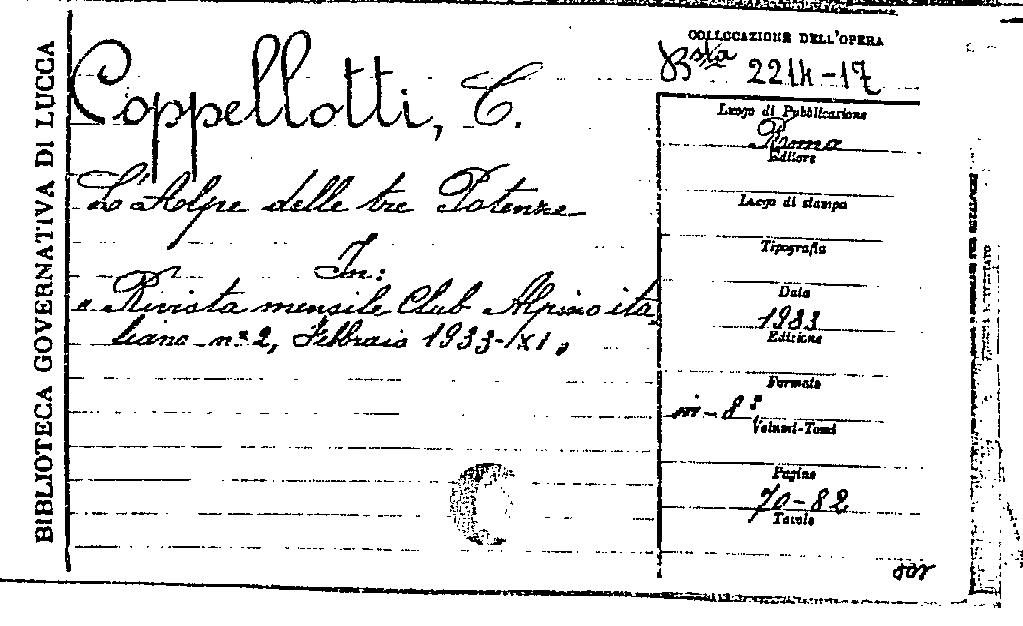 BIBLIOTECA GOVERNATIVA DI LUCCA
Coppellotti, C.
L'Alpe delle tre Potenze
In:
"Rivista mensile Club Alpino ita
liano n° 2, Febbraio 1933-XI,
COLLOCAZIONE DELL'OPERA
Bsta 2214-17
Luogo di Pubblicazione
Roma
Editore
Luogo di stampa
Tipografia
Data
1933
Edizione
Formato
in-8°,
Volumi-Tomi
Pagine
70-82
Tavole